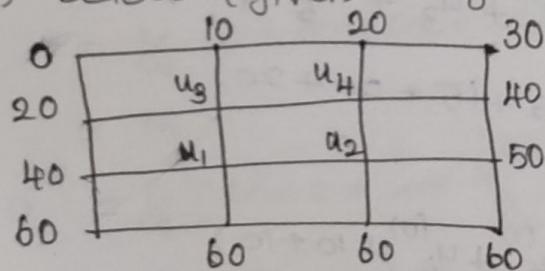 10 20 30
0
u3 u4
20 40
u1 u2
40 50
60
60 60 60